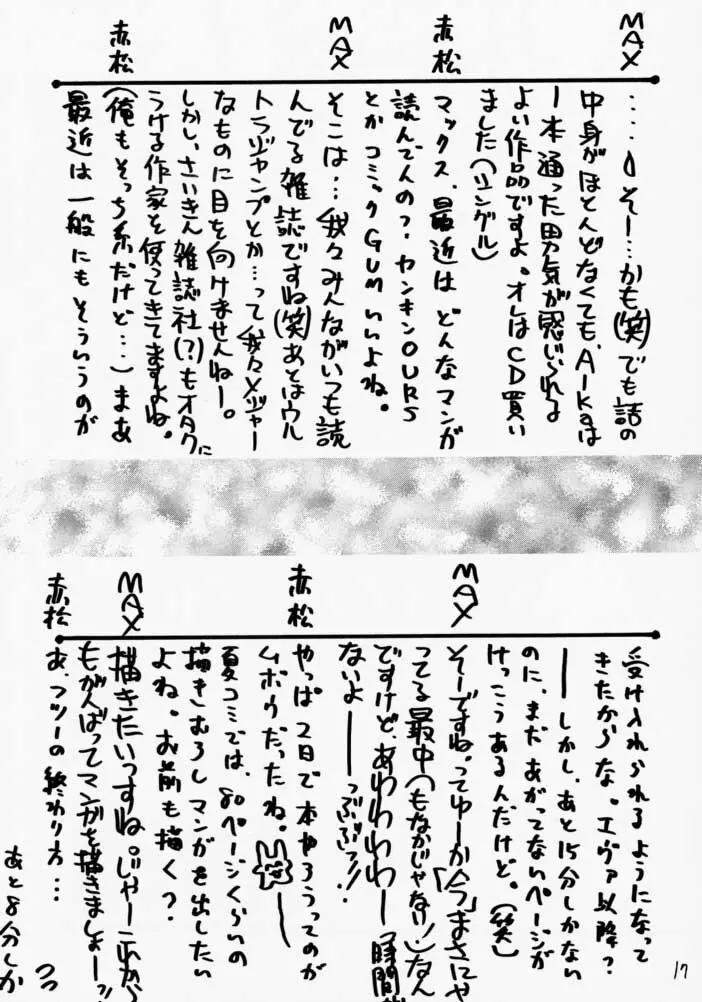 MAX
‥‥うそー…かも(笑)でも話の
中身がほとんどなくても、AIKaは
一本通った男気が感じられる
よい作品ですよ。オレはCD買い
ました(シングル)
赤松
マックス、最近はどんなマンガ
読んでんの？・ヤンキンOURS
とかコミックGUMいいよね。
MAX
そこは…我々みんながいつも読
んでる雑誌ですね(笑)あとはウル
トラジャンプとか…って我々メジャー
なものに目を向けませんねー。
赤松
しかし、さいきん雑誌社(？)もオタクに
うける作家を使ってきてますよね。
(俺もそっち系だけど…)まあ
最近は一般にもそういうのが
受け入れられるようになって
きたからな。エヴァ以降？
――しかし、あと15分しかない
のに、まだあがってないページが
けっこうあるんだけど。(笑)
MAX
そーですね。ってゆーか「今」まさにや
ってる最中(もなかじゃない!)なん
ですけど、あわわわわー時間が
ないよ――っぶぶっ!!
赤松
やっぱ2日で本やろうってのが
ムボウだったね。――
夏コミでは、80ページくらいの
描きむろしマンガを出したい
よね。お前も描く？
MAX
描きたいっすね。じゃーこれから
もがんばってマンガを描きましょーっ!!
赤松
あ、フツーの終わり方…
あと8分しか
17